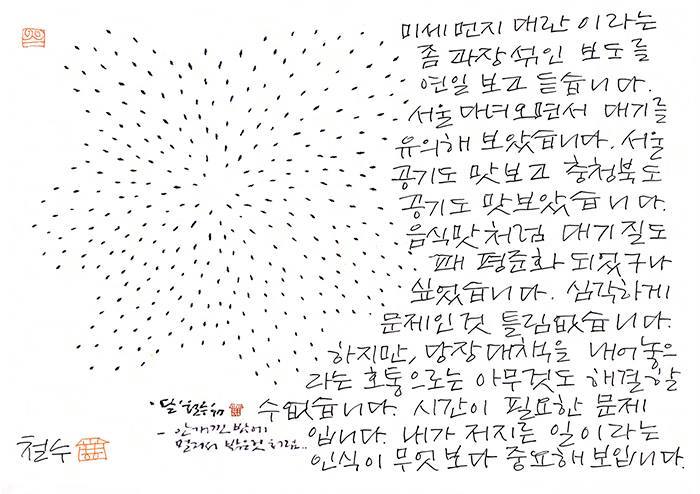 미세먼지 대란 이라는
좀 과장섞인 보도를
연일 보고 듣습니다.
서울 다녀오면서 대기를
유의해 보았습니다. 서울
공기도 맛보고 충청북도
공기도 맛보았습니다.
음식맛처럼 대기질도
꽤 평준화 되었구나
싶었습니다. 심각하게
문제인것 틀림없습니다.
하지만, 당장대책을 내어놓으
라는 호통으로는 아무것도 해결할
수없습니다. 시간이 필요한 문제
입니다. 내가 저지른 일이라는
인식이 무엇보다 중요해보입니다.
"달" 철수
- 안개낀 밤에
철수